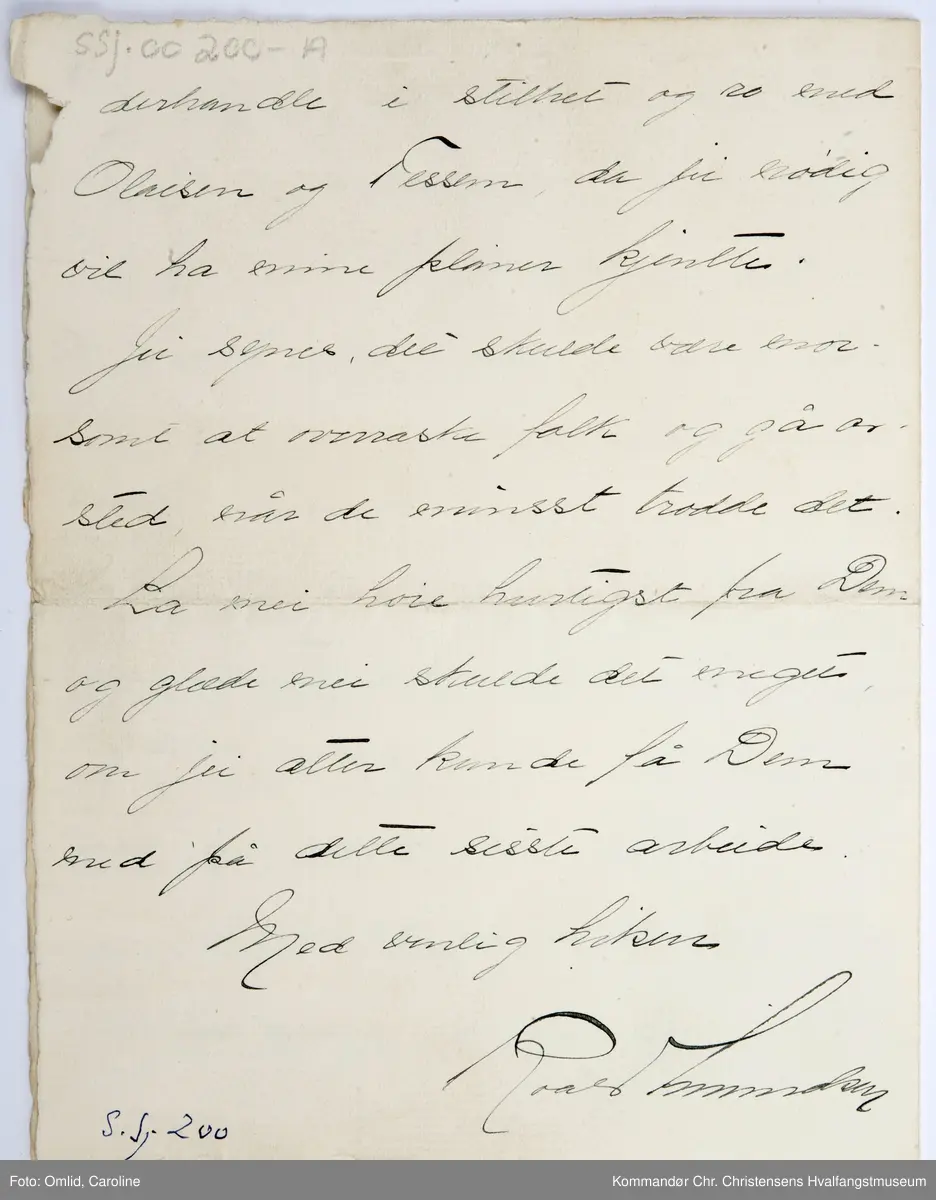 SSj.00 200-A
derhandle i stilhet og ro med
Olaisen og Tessem, da jei nødig
vil ha mine planer kjentte.
Jei synes, det skulde være mor-
somt at overraske folk og gå av-
sted, når de minsst trodde det.
La mei høre hurtigst fra Dem
og glæde mei skulde det meget,
om jei atter kunde få Dem
med på dette sisste arbeide.
Med venlig hilsen
Roald Amundsen
S.Sj. 200
Foto: Omlid, Caroline
Kommandør Chr. Christensens Hvalfangstmuseum